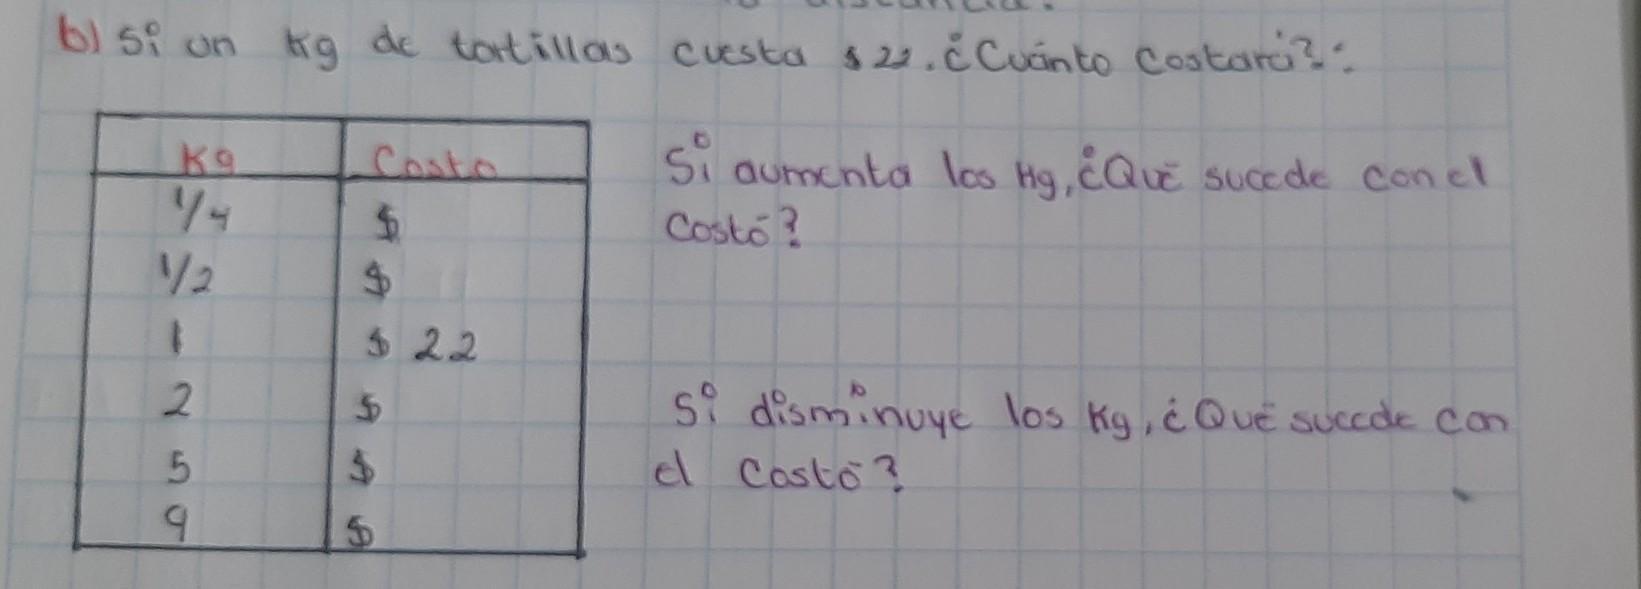 b) Si un Kg de tortillas cuesta $ 22. ¿Cuánto costará?:
Kg Costo
1/4 $
1/2 $
1 $ 22
2 $
5 $
9 $
Si aumenta los Kg, ¿Qué sucede con el
costó?
Si disminuye los Kg, ¿Qué sucede con
el costó?